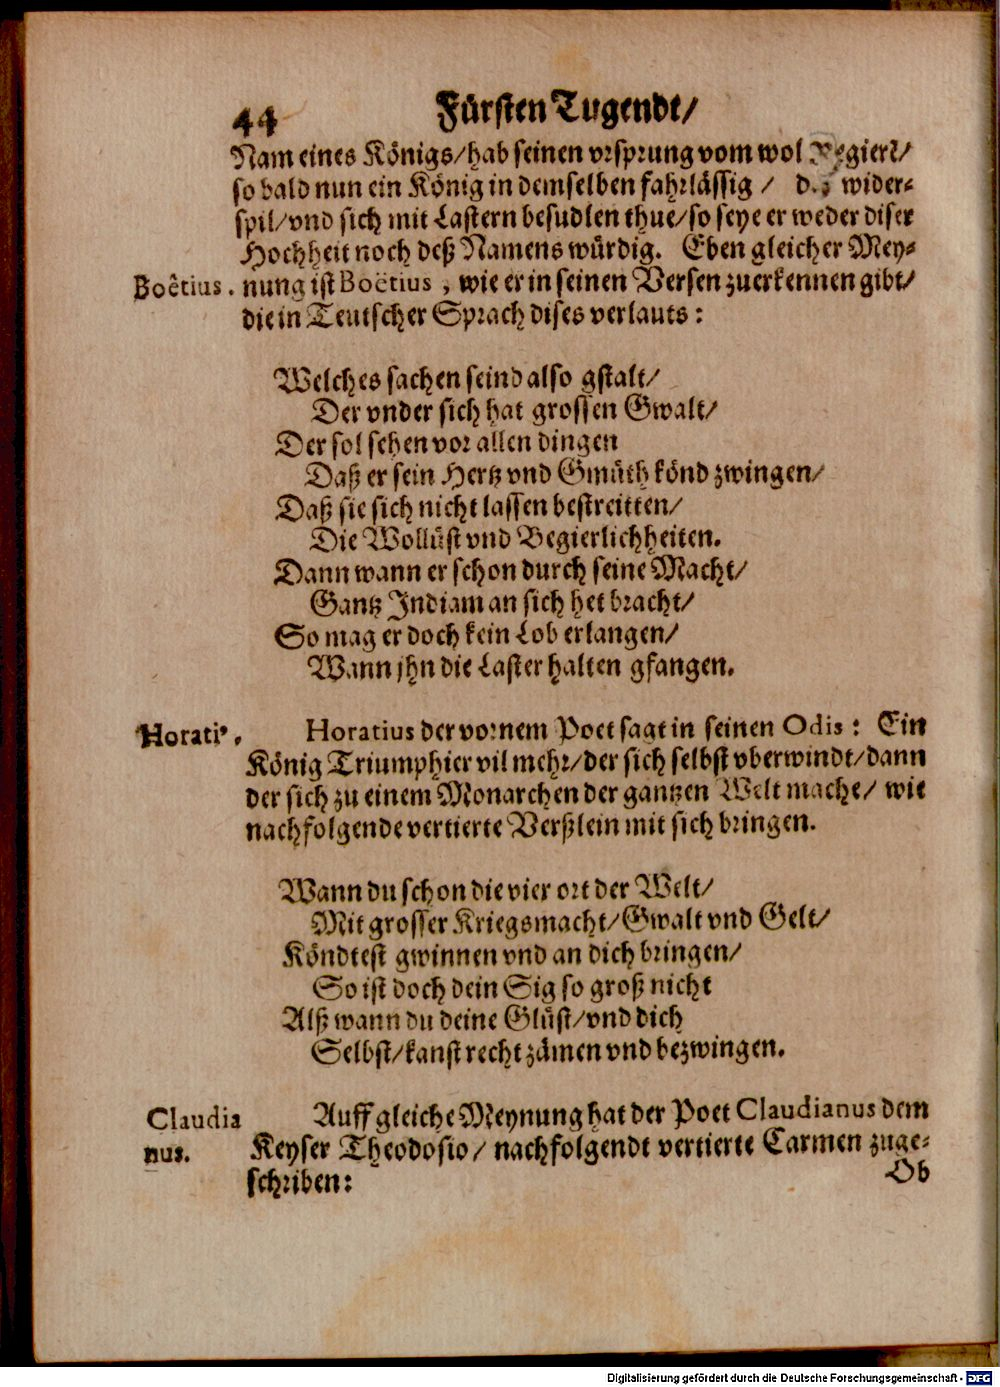 44 Fürsten Tugendt/
Nam eines Königs/hab seinen vrsprung vom wol
so bald nun ein König in demselben fahrlässig / wider-
spil/vnd sich mit Lastern besudlen thue/so seye er weder diser
Hochheit noch deß Namens würdig. Eben gleicher Mey-
Boëtius. nung ist Boëtius, wie er in seinen Versen zuerkennen gibt/
die in Teutscher Sprach dises verlauts:
Welches sachen seind also gstalt/
Der vnder sich hat grossen Gwalt/
Der sol sehen vor allen dingen
Daß er sein Hertz vnd Gmüth könd zwingen/
Daß sie sich nicht lassen bestreitten/
Die Wollüst vnd Begierlichheiten.
Dann wann er schon durch seine Macht/
Gantz Indiam an sich het bracht/
So mag er doch kein Lob erlangen/
Wann jhn die Laster halten gfangen.
Horatiꝰ. Horatius der vornem Poet sagt in seinen Odis: Ein
König Triumphier vil mehr/der sich selbst vberwindt/dann
der sich zu einem Monarchen der gantzen Welt mache/ wie
nachfolgende vertierte Verßlein mit sich bringen.
Wann du schon die vier ort der Welt/
Mit grosser Kriegsmacht/Gwalt vnd Gelt/
Köndtest gwinnen vnd an dich bringen/
So ist doch dein Sig so groß nicht
Alß wann du deine Glüst/vnd dich
Selbst/kanst recht zämen vnd bezwingen.
Claudia Auff gleiche Meynung hat der Poet Claudianus dem
nus. Keyser Theodosio/ nachfolgendt vertierte Carmen zuge-
schriben:
Ob
Digitalisierung gefördert durch die Deutsche Forschungsgemeinschaft - DFG